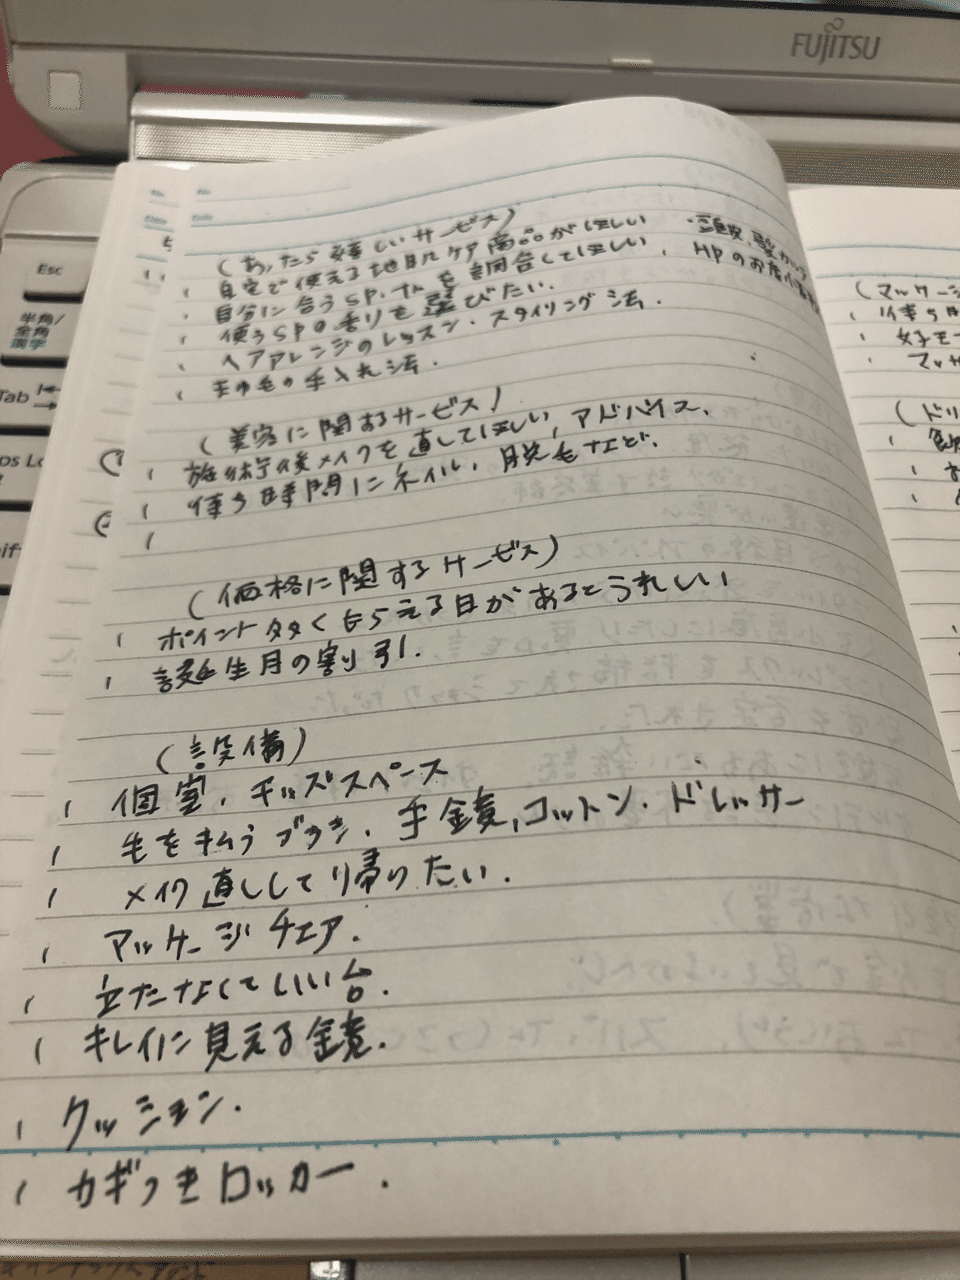 FUJITSU
Esc
半角/
全角
漢字
Tab
(あったら嬉しいサービス)
・自宅で使える地肌ケア商品がほしい
・自分に合うSP.tr.を調合してほしい
・使うSPの香りを選びたい.
・ヘアアレンジのレッスン・スタイリング法.
・まゆ毛の手入れ法.
・頭皮.髪
・HPのお店
(美容に関するサービス)
・施術後メイクを直してほしい, アドバイス.
・待ち時間にネイル, 脱毛など.
(価格に関するサービス)
・ポイント多くもらえる日があるとうれしい
・誕生月の割引.
(設備)
・個室, キッズスペース
・毛を払うブラシ, 手鏡, コットン・ドレッサー
・メイク直しして帰りたい.
・マッサージチェア.
・立たなくていい台.
・キレイに見える鏡.
・クッション.
・カギつきロッカー.
(マッサージ
・待ち時
・マッサ
(ドリ
・飲